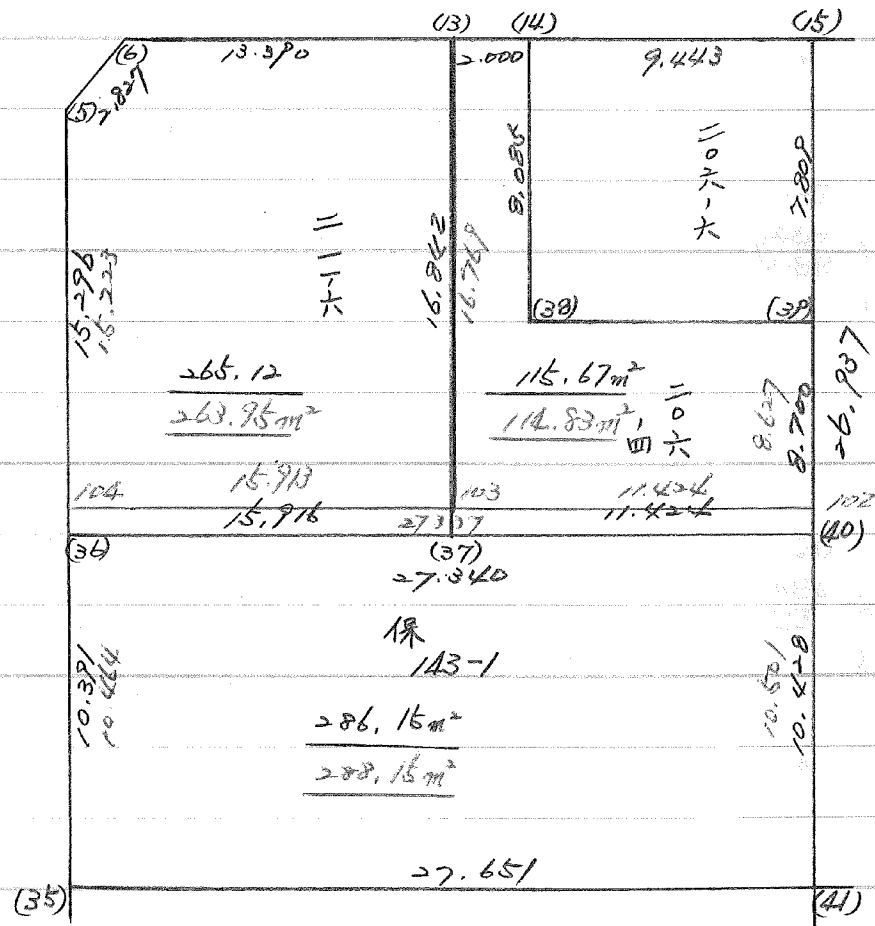 (13)
(14)
(15)
(6)
13.390
2.000
9.443
(5)
2.827
8.085
二〇六-六
7.809
二一一六
15.296
15.223
16.842
16.769
(38)
(39)
265.12
263.95m²
115.67m²
114.83m²
二〇六-四
8.627
8.700
26.937
104
15.913
103
11.424
102
15.916
27.337
11.424
(36)
(37)
(40)
27.340
保
143-1
10.391
10.464
10.501
10.428
286.15m²
288.15m²
27.651
(35)
(41)